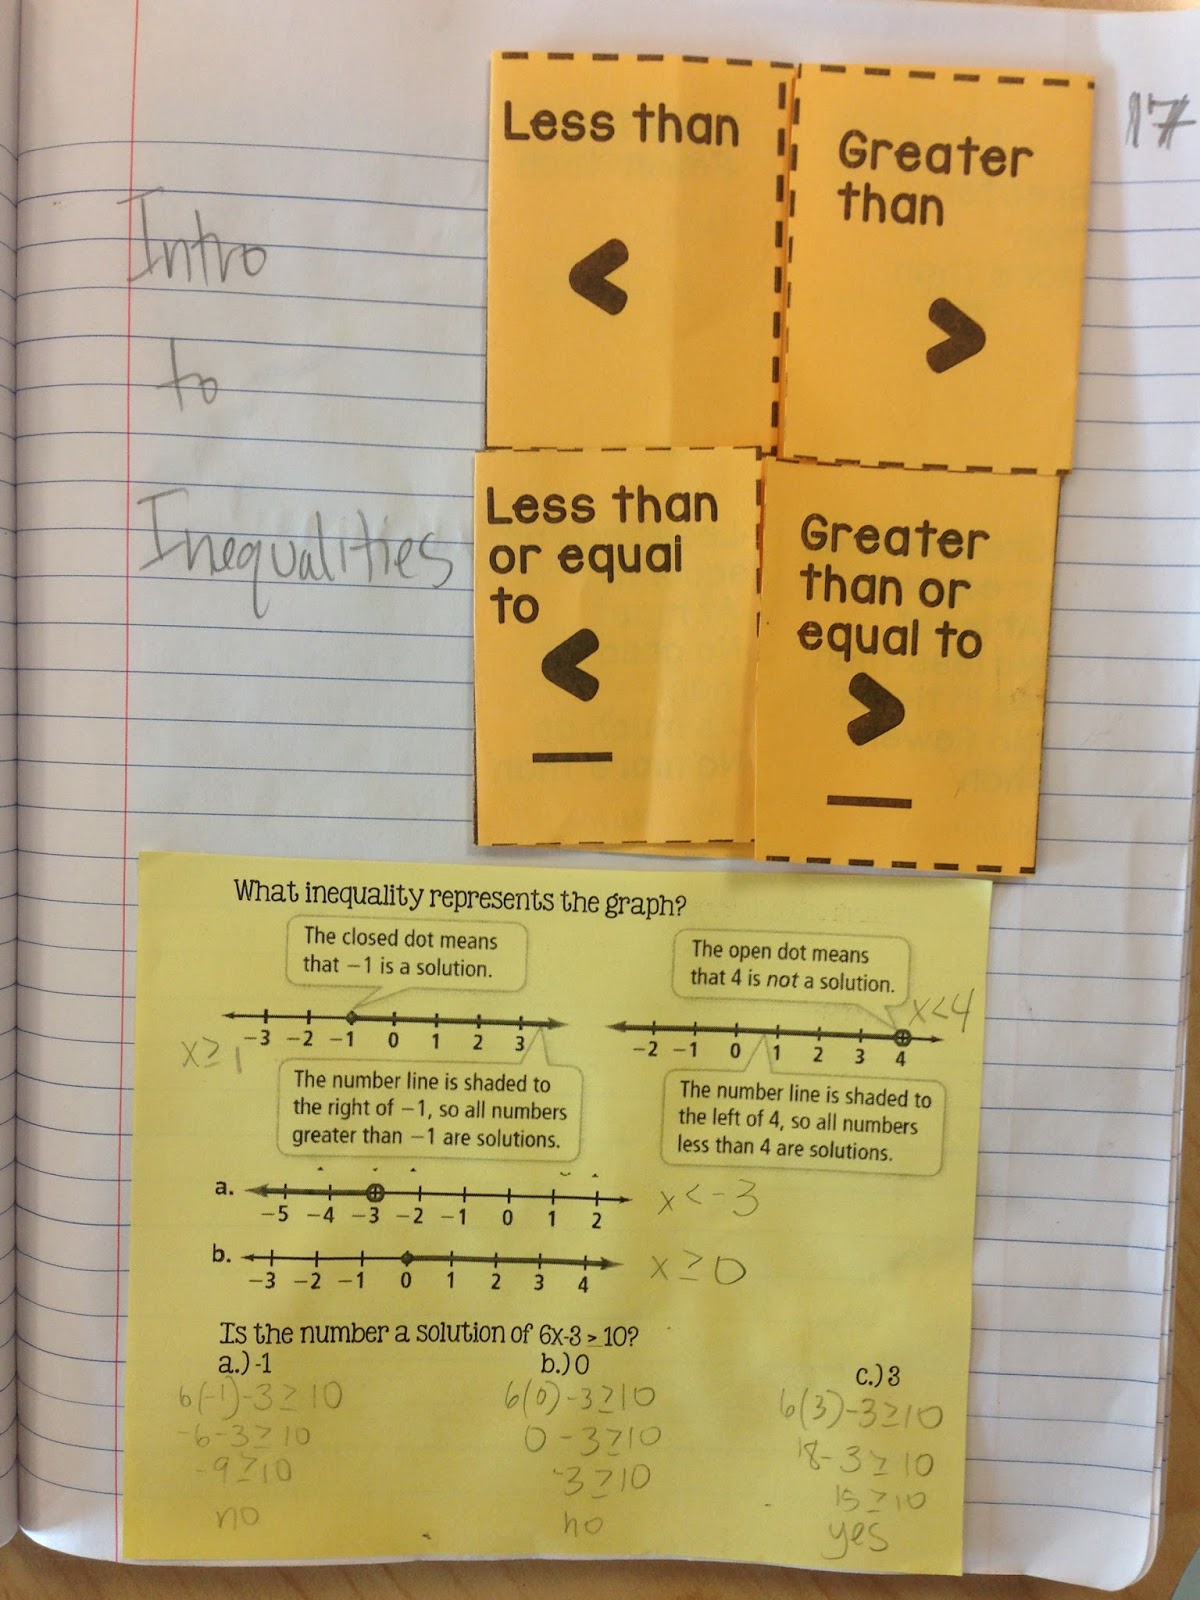 17
Intro
to
Inequalities
Less than
<
Greater
than
>
Less than
or equal
to
≤
Greater
than or
equal to
≥
What inequality represents the graph?
The closed dot means
that −1 is a solution.
The open dot means
that 4 is not a solution.
x≥1
-3 -2 -1 0 1 2 3
x<4
-2 -1 0 1 2 3 4
The number line is shaded to
the right of −1, so all numbers
greater than −1 are solutions.
The number line is shaded to
the left of 4, so all numbers
less than 4 are solutions.
a.
-5 -4 -3 -2 -1 0 1 2
x<-3
b.
-3 -2 -1 0 1 2 3 4
x≥0
Is the number a solution of 6x-3 ≥ 10?
a.) -1
6(-1)-3≥10
-6-3≥10
-9≥10
no
b.) 0
6(0)-3≥10
0-3≥10
-3≥10
no
c.) 3
6(3)-3≥10
18-3≥10
15≥10
yes